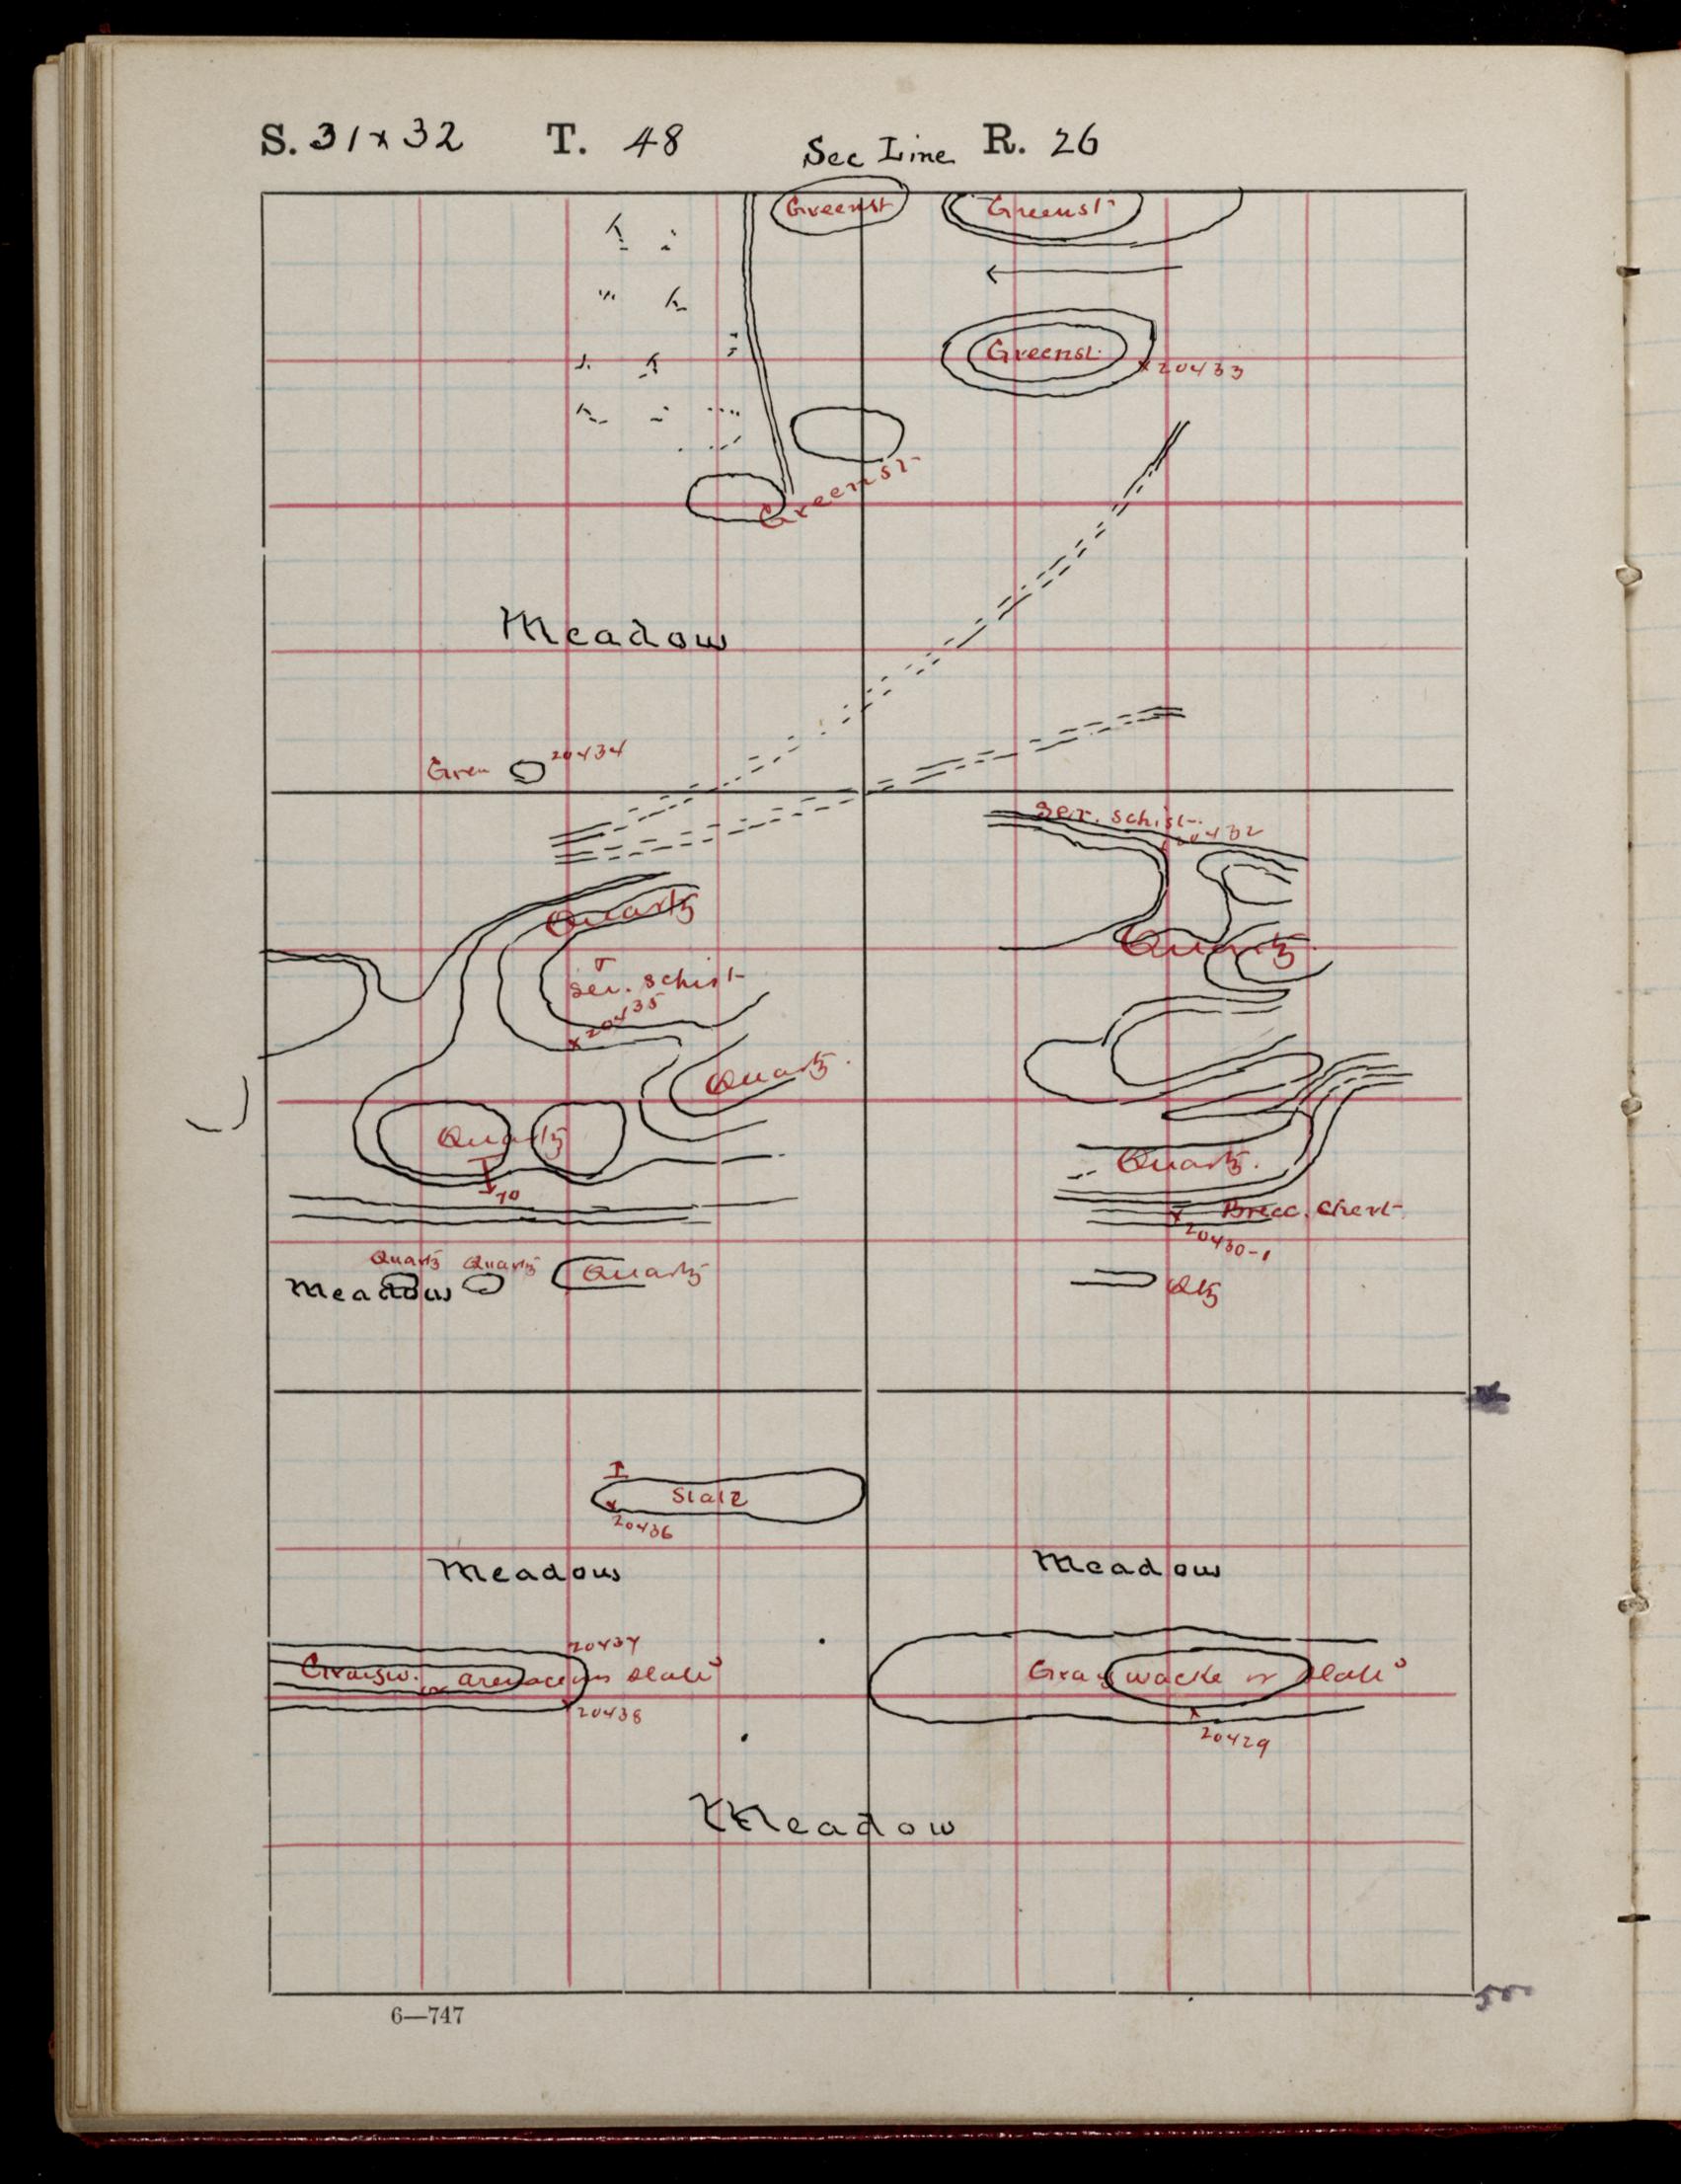 S. 31 x 32 T. 48 Sec Line R. 26
Greenst Greenst
Greenst.
x 20433
Greenst
Meadow
Green 20434
Ser. schist
20432
Quartz
Quartz
Ser. schist
x 20435
Quartz.
Quartz
70
Quartz.
Brecc. Chert
x 20430-1
Quartz Quartz Quartz
Meadow
Qtz
Slate
x 20436
Meadow Meadow
20437
Grayw. or arenaceous slate
20438
Graywacke or slate
x 20429
Meadow
6—747
50